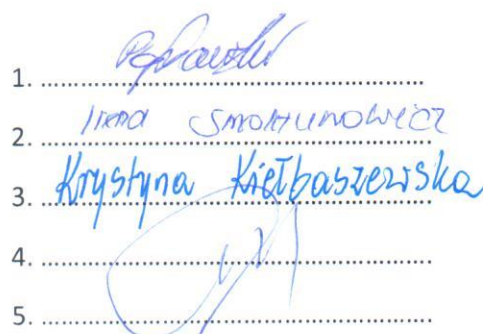 1. ........................................
2. Irena Smortunowicz
3. Krystyna Kiełbaszewska
4. ........................................
5. ........................................